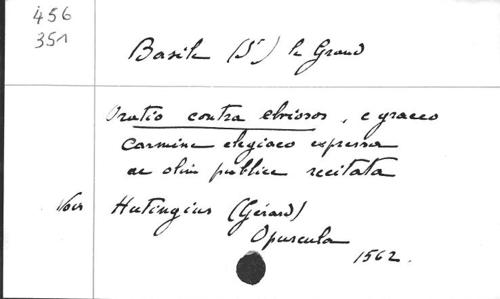 456
351
Basile (St) le Grand
Oratio contra ebriosos, e graeco
carmine elegiaco expressa
ac olim publice recitata
Voir Hutingius (Gérard)
Opuscula
1562.